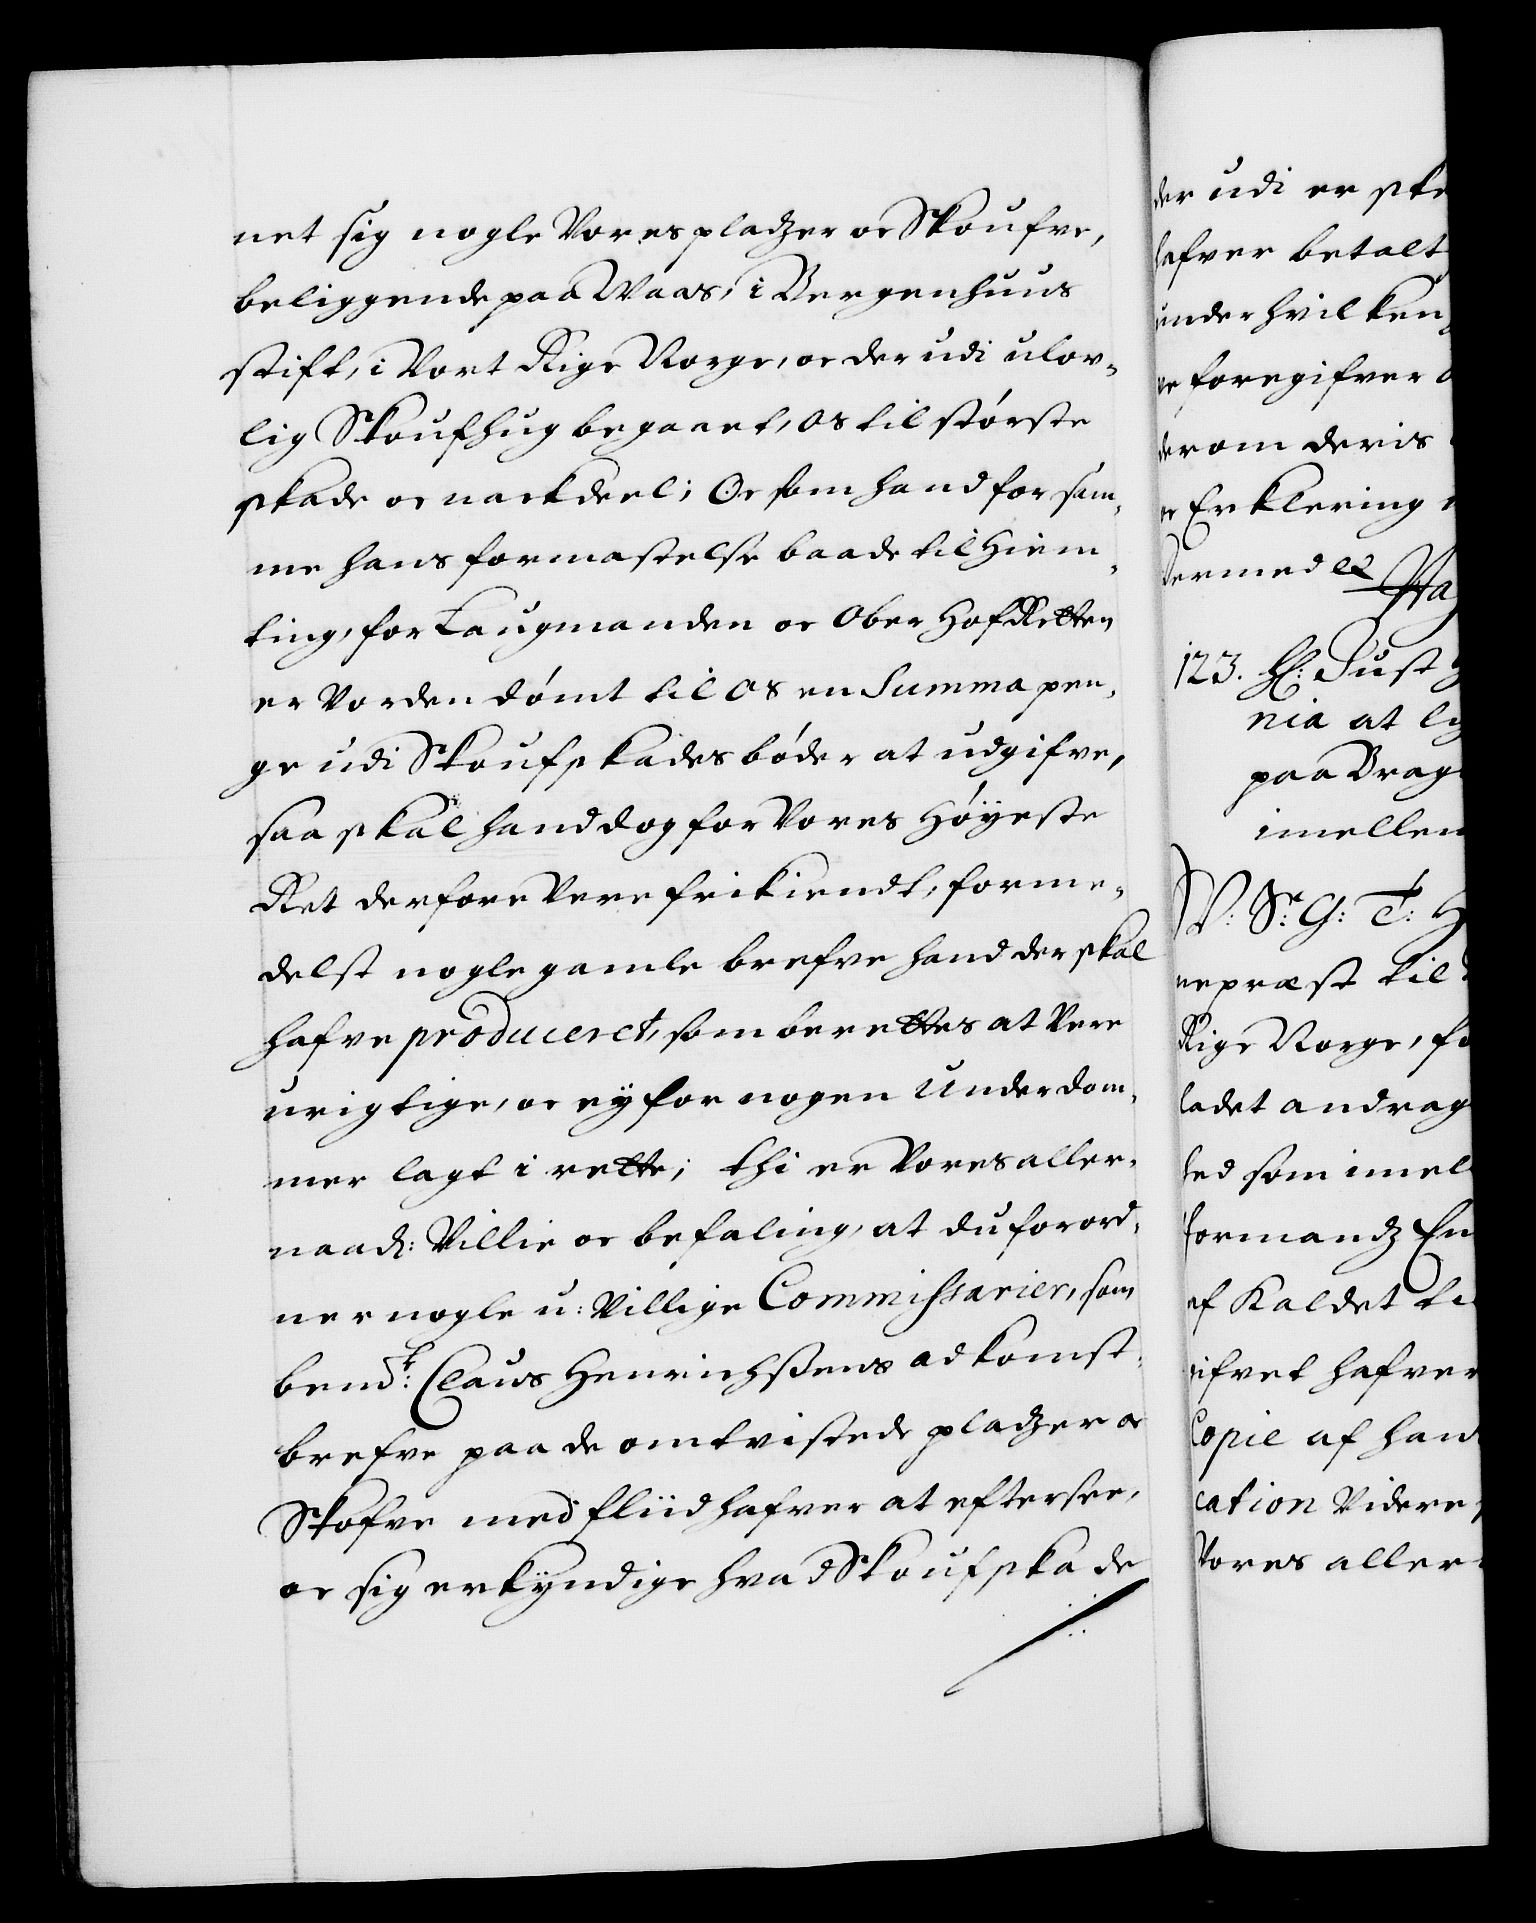 net sig nogle Vores pladzer oc Skoufve,
beliggende paa Waas, i Bergenhuus
stift, i Vort Rige Norge, oc der udi ulov-
lig Skoufhug begaaet, os til störste
skade oc nackdeel; Oc som hand for sam-
me hans formastelse baade til Hiem-
ting, for Laugmanden oc Ober HofRetten
er Vorden dömt til os en Summa pen-
ge udi Skoufskades böder at udgifve,
saa skal hand dog for Vores Höyeste
Ret derfore Vere frikiendt, forme-
delst nogle gamle brefve hand der skal
hafve produceret, som berettes at Vere
urigtige, oc ey for nogen Underdom-
mer lagt i rette; thi er Vores aller-
naad: Villie oc befaling, at du forord-
ner nogle u: Villige Commissarier, som
bemt: Claus Henrichssens adkomst-
brefve paa de omtvistede pladzer oc
Skofve med fliid hafver at eftersee,
oc sig erkyndige hvad Skoufskade
der udi er ske
hafver betalt
under hvilken
oc foregifver
derom deris
oc Erklering
Dermed
123. H: Just
nia at
paa Brag
imellem
V: Sr: G: T: H
nepræst til
Rige Norge, fo
ladet andrag
hed som imel
formandz En
af Kaldet
ifvet hafver
Copie af hand
cation Videre
Vores aller-